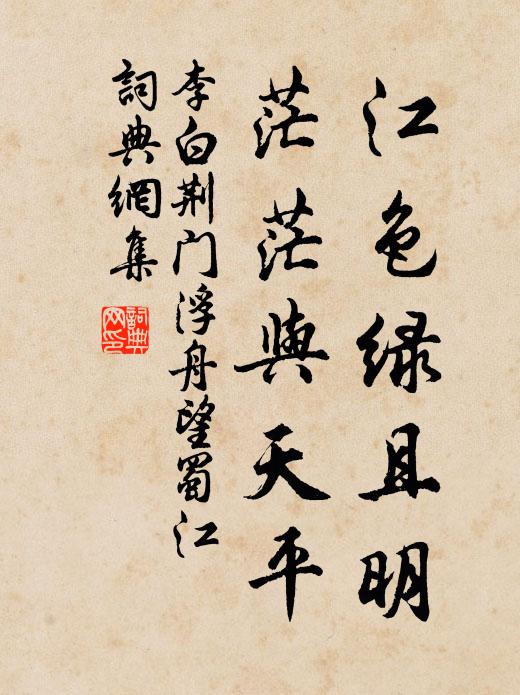 江色绿且明
茫茫與天平
李白荆门浮舟望蜀江
詞典網集
詞典网印